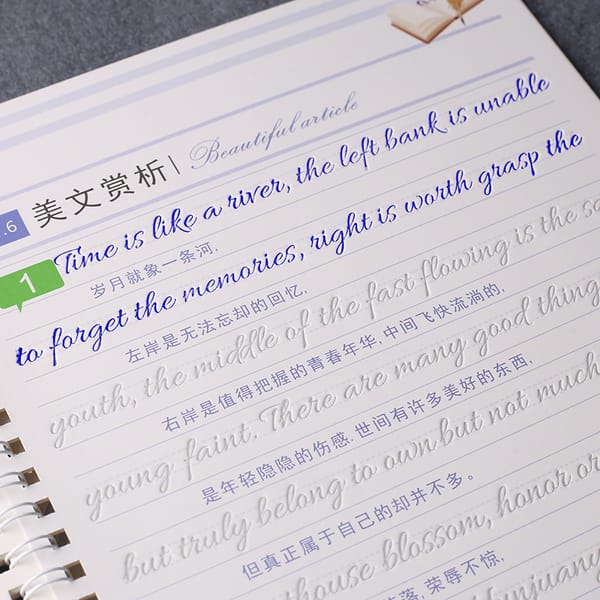 .6 美文赏析 Beautiful article
1 Time is like a river, the left bank is unable
岁月就象一条河,
to forget the memories, right is worth grasp the
左岸是无法忘却的回忆,
youth, the middle of the fast flowing is the sa
右岸是值得把握的青春年华, 中间飞快流淌的,
young faint. There are many good thing
是年轻隐隐的伤感. 世间有许多美好的东西,
but truly belong to own but not much
但真正属于自己的却并不多。
thouse blossom, honor or
落, 荣辱不惊,